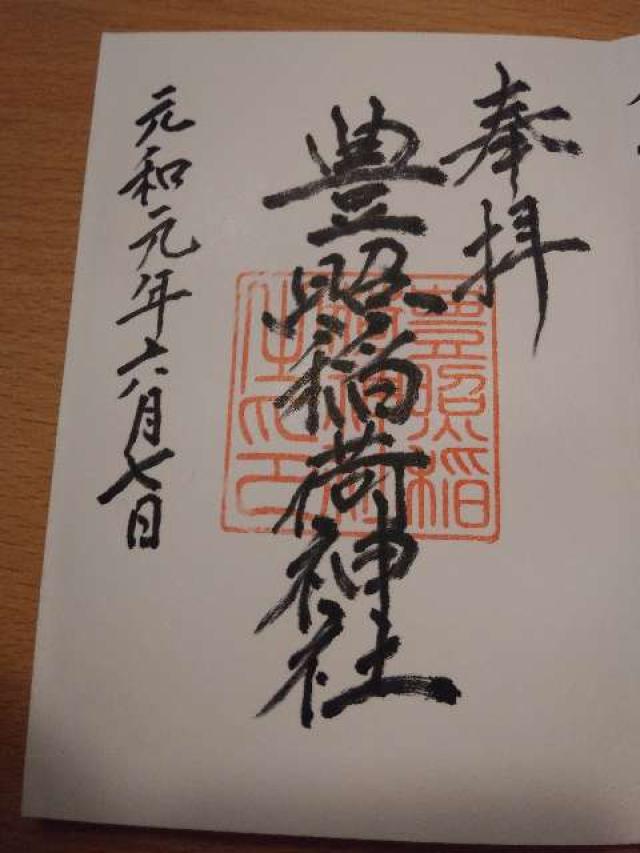 奉拝
豊照稲荷神社
豊照稲
元和元年六月七日